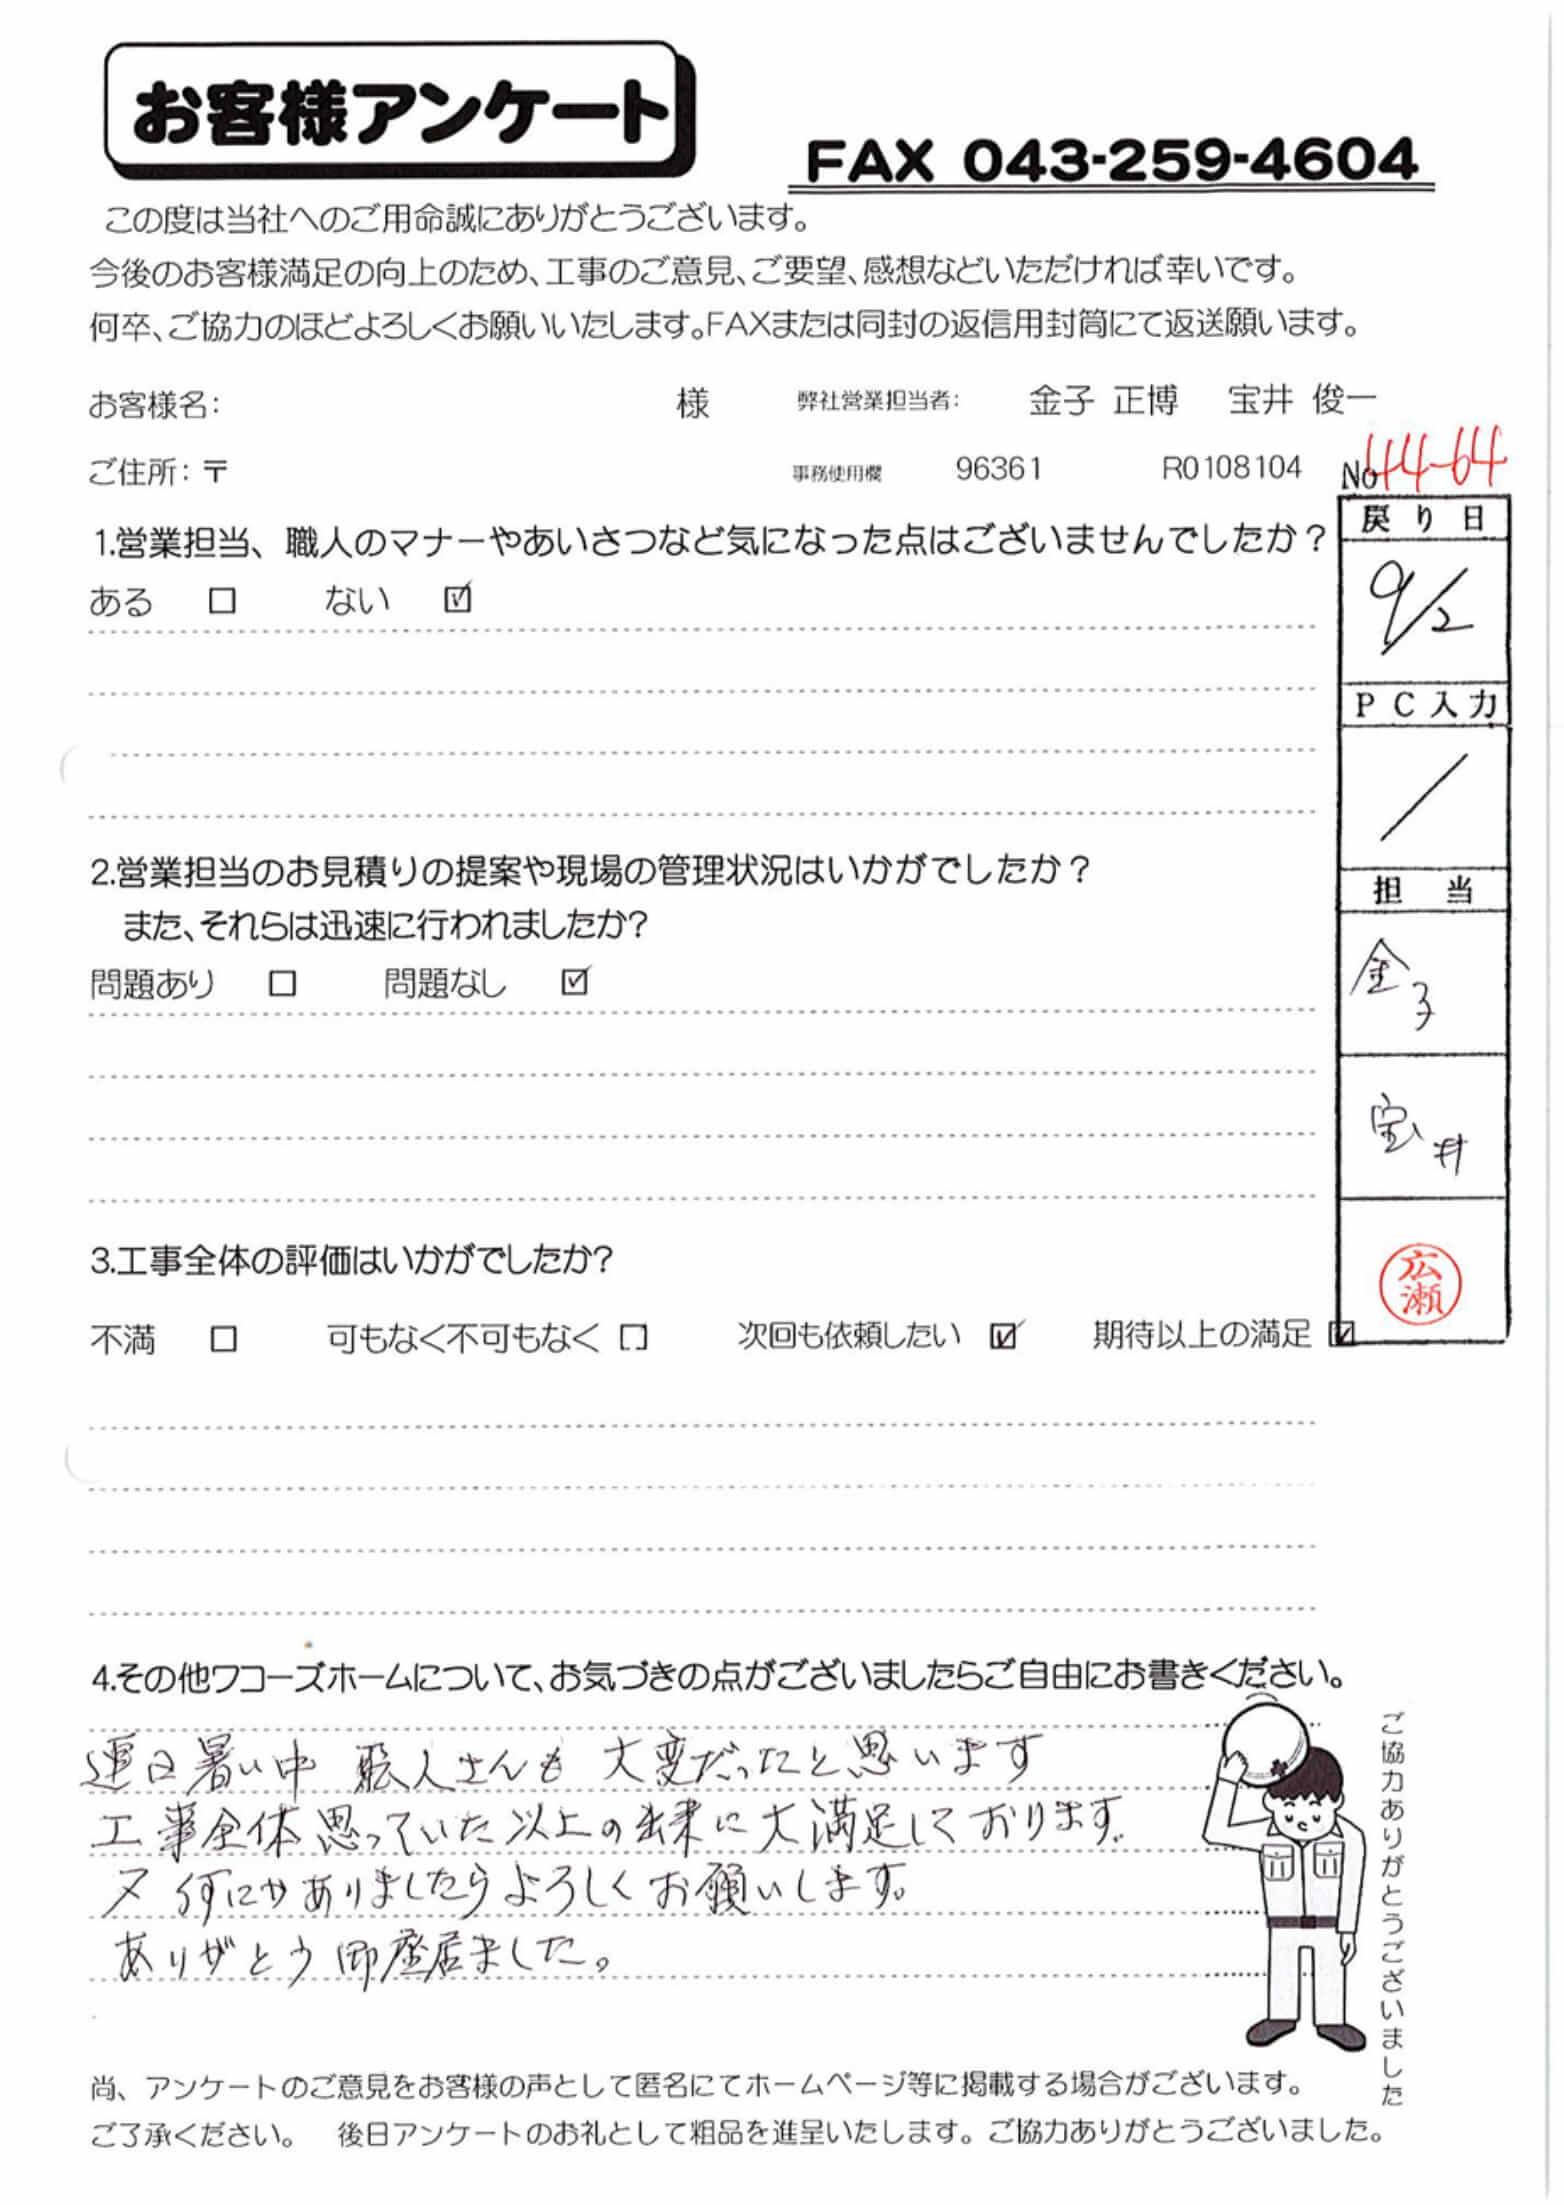 お客様アンケート
FAX 043-259-4604
この度は当社へのご用命誠にありがとうございます。
今後のお客様満足の向上のため、工事のご意見、ご要望、感想などいただければ幸いです。
何卒、ご協力のほどよろしくお願いいたします。FAXまたは同封の返信用封筒にて返送願います。
お客様名: 様 弊社営業担当者: 金子 正博 宝井 俊一
ご住所:〒 事務使用欄 96361 R0108104 No44-64
戻り日
9/2
PC入力
/
担当
金子
宝井
広瀬
1.営業担当、職人のマナーやあいさつなど気になった点はございませんでしたか?
ある □ ない ☑
2.営業担当のお見積りの提案や現場の管理状況はいかがでしたか?
また、それらは迅速に行われましたか?
問題あり □ 問題なし ☑
3.工事全体の評価はいかがでしたか?
不満 □ 可もなく不可もなく □ 次回も依頼したい ☑ 期待以上の満足 ☑
4.その他ワコーズホームについて、お気づきの点がございましたらご自由にお書きください。
連日暑い中 職人さんも 大変だったと思います
工事全体思っていた以上の出来に大満足しております。
又 何にかありましたらよろしくお願いします。
ありがとう御座居ました。
ご協力ありがとうございました
尚、アンケートのご意見をお客様の声として匿名にてホームページ等に掲載する場合がございます。
ご了承ください。 後日アンケートのお礼として粗品を進呈いたします。ご協力ありがとうございました。